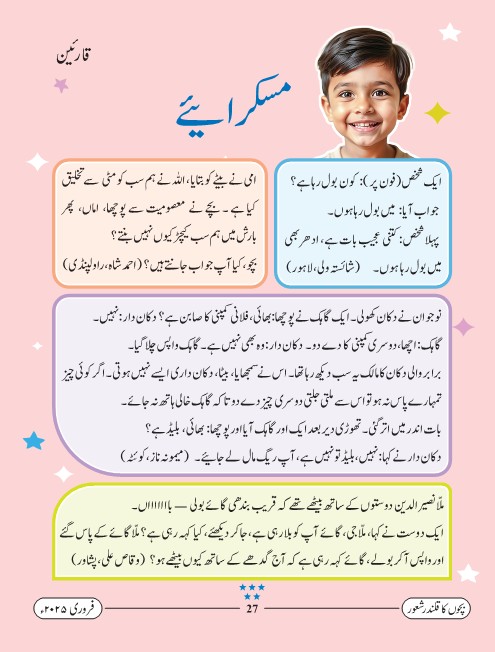 قارئین
مسکرائیے
ایک شخص (فون پر): کون بول رہا ہے؟
جواب آیا: میں بول رہا ہوں۔
پہلا شخص: کتنی عجیب بات ہے، ادھر بھی
میں بول رہا ہوں۔ (شائستہ ولی، لاہور)
امی نے بیٹے کو بتایا، اللہ نے ہم سب کو مٹی سے تخلیق
کیا ہے۔ بچے نے معصومیت سے پوچھا، اماں، پھر
بارش میں ہم سب کیچڑ کیوں نہیں بنتے؟
بچو، کیا آپ جواب جانتے ہیں؟ (احمد شاہ، راولپنڈی)
نوجوان نے دکان کھولی۔ ایک گاہک نے پوچھا: بھائی، فلانی کمپنی کا صابن ہے؟ دکان دار: نہیں۔
گاہک: اچھا، دوسری کمپنی کا دے دو۔ دکان دار: وہ بھی نہیں ہے۔ گاہک واپس چلا گیا۔
برابر والی دکان کا مالک یہ سب دیکھ رہا تھا۔ اس نے سمجھایا، بیٹا، دکان داری ایسے نہیں ہوتی۔ اگر کوئی چیز
تمہارے پاس نہ ہو تو اس سے ملتی جلتی دوسری چیز دے دو تاکہ گاہک خالی ہاتھ نہ جائے۔
بات اندر میں اتر گئی۔ تھوڑی دیر بعد ایک اور گاہک آیا اور پوچھا: بھائی، بلیڈ ہے؟
دکان دار نے کہا: نہیں، بلیڈ تو نہیں ہے، آپ ریگ مال لے جائیے۔ (میمونہ ناز، کوئٹہ)
ملّا نصیر الدین دوستوں کے ساتھ بیٹھے تھے کہ قریب بندھی گائے بولی — بااااااں۔
ایک دوست نے کہا، ملّا جی، گائے آپ کو بلا رہی ہے، جا کر دیکھئے، کیا کہہ رہی ہے؟ ملّا گائے کے پاس گئے
اور واپس آ کر بولے، گائے کہہ رہی ہے کہ آج گدھے کے ساتھ کیوں بیٹھے ہو؟ (وقاص علی، پشاور)
بچوں کا قلندر شعور
27
فروری ۲۰۲۵ء